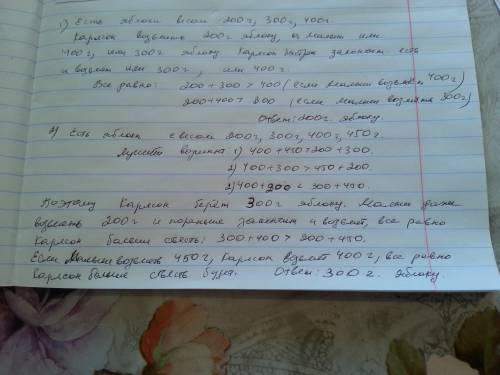 1) Есть яблоки весом 200г, 300г, 400г.
Карлсон возьмёть 200г яблоку, а малыш или
400г, или 300г яблоку. Карлсон закончит есть
и возьмет или 300г, или 400г.
Все равно: 200+300 > 400 (если малыш возьмёт 400г)
200+400 > 300 (если малыш возьмет 300г)
Ответ: 200г. яблоку.
2) Есть яблоки с весом 200г, 300г, 400г, 450г.
вариант: 1) 400+450 > 200+300.
2) 400+300 > 450+200.
3) 400+200 < 300+450.
Поэтому Карлсон берёт 300г яблоку. Малыш даже
возьмёть 200г и пораньше закончит и возьмет, все равно
Карлсон больше съесть: 300+400 > 200+450.
Если Малыш возьмёть 450г, Карлсон возьмет 400г, все равно
Карлсон больше съесть будет. Ответ: 300г. яблоку.